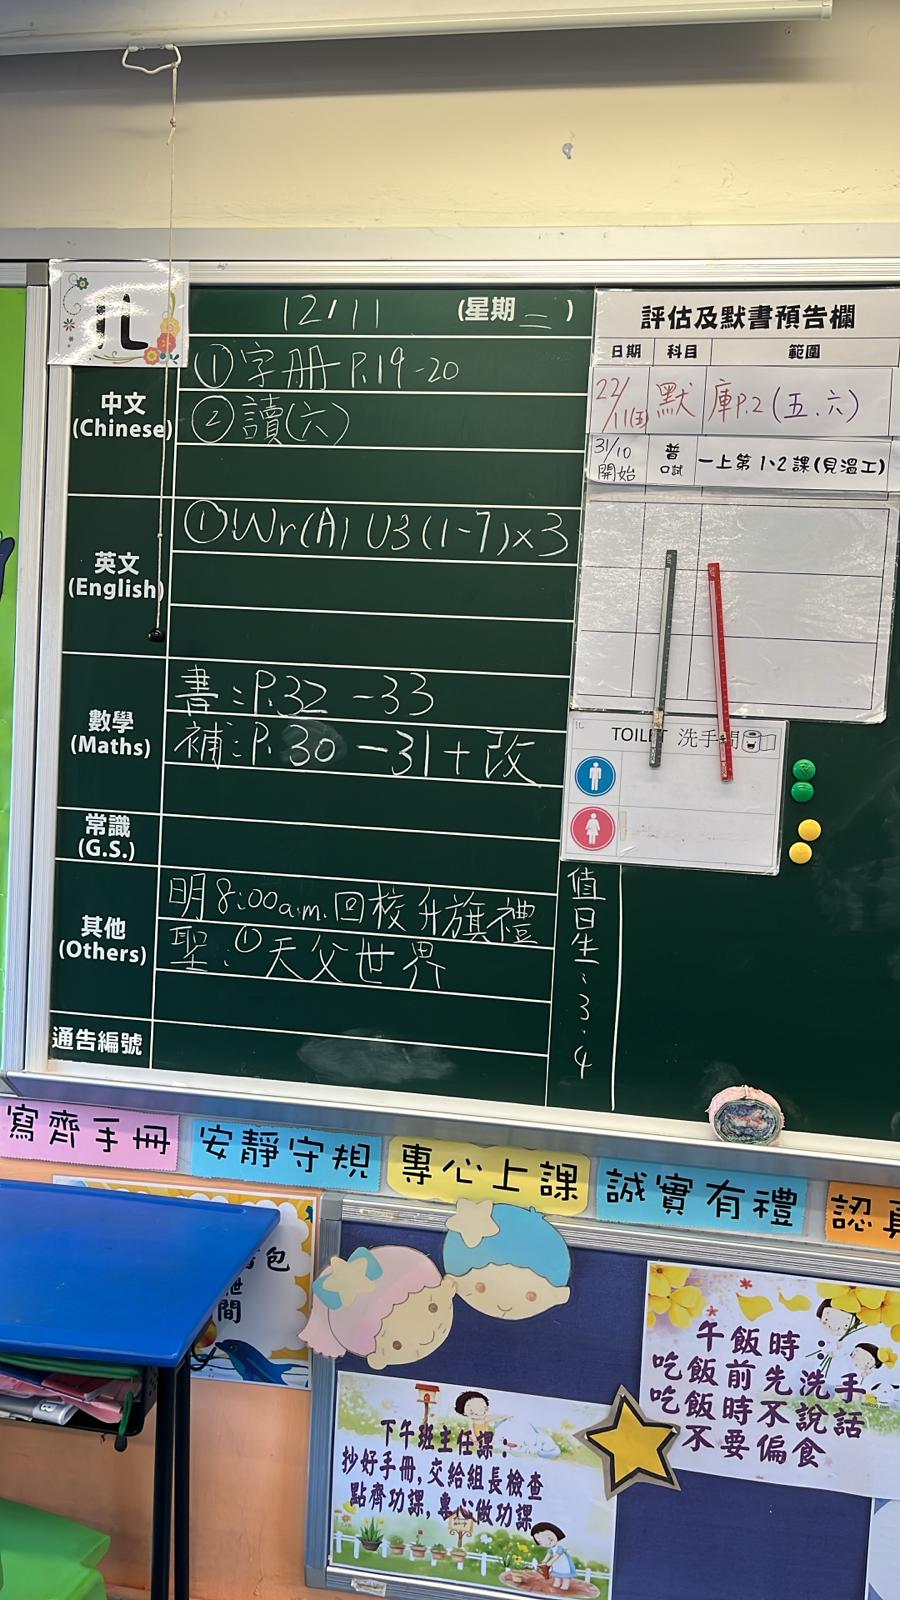 1L
12/11 (星期二)
中文
(Chinese)
①字册 P.19-20
②讀(六)
英文
(English)
①Wr(A) U3(1-7)×3
數學
(Maths)
書:P.32-33
補:P.30-31+改
常識
(G.S.)
其他
(Others)
明8:00a.m.回校升旗禮
聖:①天父世界
通告編號
值日生:3.4
評估及默書預告欄
日期 科目 範圍
22/11(五) 默 庫P.2(五.六)
31/10開始 普口試 一上第1、2課(見溫工)
1L
TOILET 洗手間
寫齊手冊
安靜守規
專心上課
誠實有禮
認真
包
間
午飯時:
吃飯前先洗手
吃飯時不說話
不要偏食
下午班主任課:
抄好手冊,交給組長檢查
點齊功課,專心做功課